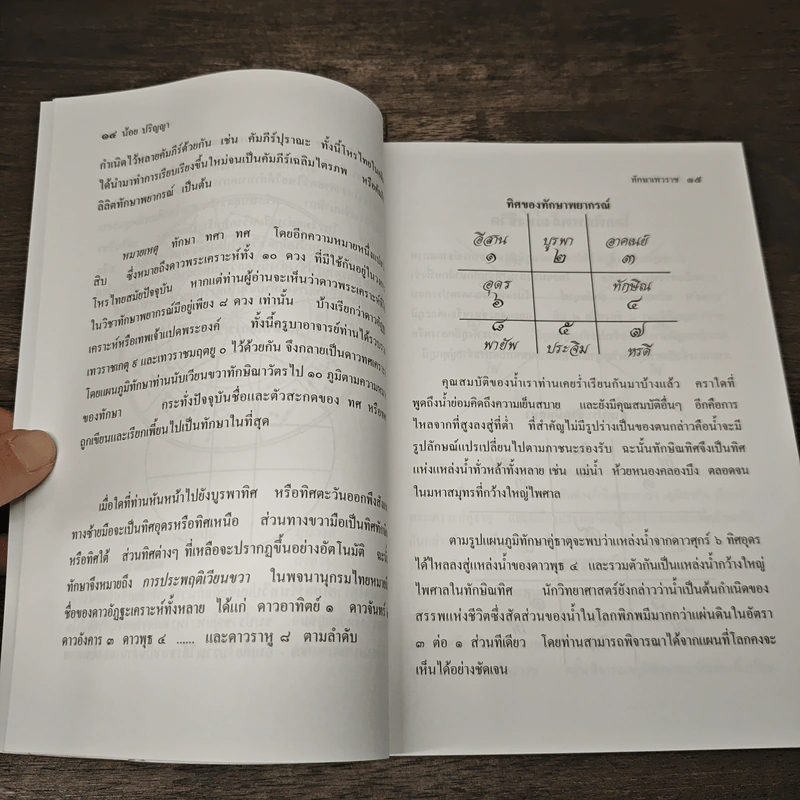 ๑๔ น้อย ปริญญา
กำเนิดไว้หลายคัมภีร์ด้วยกัน เช่น คัมภีร์ปุราณะ ทั้งนี้โหรไทยใน
ได้นำมาทำการเรียบเรียงขึ้นใหม่จนเป็นคัมภีร์เฉลิมไตรภพ หรือ
ลิลิตทักษาพยากรณ์ เป็นต้น
หมายเหตุ ทักษา ทศา ทศ โดยอีกความหมายหนึ่ง
สิบ ซึ่งหมายถึงดาวพระเคราะห์ทั้ง ๑๐ ดวง ที่มีใช้กันอยู่ใน
โหรไทยสมัยปัจจุบัน หากแต่ท่านผู้อ่านจะเห็นว่าดาวพระเคราะห์
ในวิชาทักษาพยากรณ์มีอยู่เพียง ๘ ดวง เท่านั้น บ้างเรียกว่าดาว
เคราะห์หรือเทพเจ้าแปดพระองค์ ทั้งนี้ครูบาอาจารย์ท่านได้
เทวราชเกตุ ๙ และเทวราชมฤตยู ๐ ไว้ด้วยกัน จึงกลายเป็นดาวทศ
โดยแผนภูมิทักษาท่านนับเวียนขวาทักษิณาวัตรไป ๑๐ ภูมิตามความ
ของทักษา กระทั่งปัจจุบันชื่อและตัวสะกดของ ทศ หรือ
ถูกเขียนและเรียกเพี้ยนไปเป็นทักษาในที่สุด
เมื่อใดที่ท่านหันหน้าไปยังบูรพาทิศ หรือทิศตะวันออกพึง
ทางซ้ายมือจะเป็นทิศอุดรหรือทิศเหนือ ส่วนทางขวามือเป็นทิศ
หรือทิศใต้ ส่วนทิศต่างๆ ที่เหลือจะปรากฏขึ้นอย่างอัตโนมัติ
ทักษาจึงหมายถึง การประพฤติเวียนขวา ในพจนานุกรมไทย
ชื่อของดาวอัฏฐะเคราะห์ทั้งหลาย ได้แก่ ดาวอาทิตย์ ๑ ดาวจันทร์
ดาวอังคาร ๓ ดาวพุธ ๔ ...... และดาวราหู ๘ ตามลำดับ
ทักษาเทวราช ๑๕
ทิศของทักษาพยากรณ์
อีสาน บูรพา อาคเนย์
๑ ๒ ๓
อุดร ทักษิณ
๖ ๔
๘ ๕ ๗
พายัพ ประจิม หรดี
คุณสมบัติของน้ำเราท่านเคยร่ำเรียนกันมาบ้างแล้ว คราใดที่
พูดถึงน้ำย่อมคิดถึงความเย็นสบาย และยังมีคุณสมบัติอื่นๆ อีกคือการ
ไหลจากที่สูงลงสู่ที่ต่ำ ที่สำคัญไม่มีรูปร่างเป็นของตนกล่าวคือน้ำจะมี
รูปลักษณ์แปรเปลี่ยนไปตามภาชนะรองรับ ฉะนั้นทักษิณทิศจึงเป็นทิศ
แห่งแหล่งน้ำทั่วหล้าทั้งหลาย เช่น แม่น้ำ ห้วยหนองคลองบึง ตลอดจน
ในมหาสมุทรที่กว้างใหญ่ไพศาล
ตามรูปแผนภูมิทักษาคู่ธาตุจะพบว่าแหล่งน้ำจากดาวศุกร์ ๖ ทิศอุดร
ได้ไหลลงสู่แหล่งน้ำของดาวพุธ ๔ และรวมตัวกันเป็นแหล่งน้ำกว้างใหญ่
ไพศาลในทักษิณทิศ นักวิทยาศาสตร์ยังกล่าวว่าน้ำเป็นต้นกำเนิดของ
สรรพแห่งชีวิตซึ่งสัดส่วนของน้ำในโลกพิภพมีมากกว่าแผ่นดินในอัตรา
๓ ต่อ ๑ ส่วนทีเดียว โดยท่านสามารถพิจารณาได้จากแผนที่โลกคงจะ
เห็นได้อย่างชัดเจน